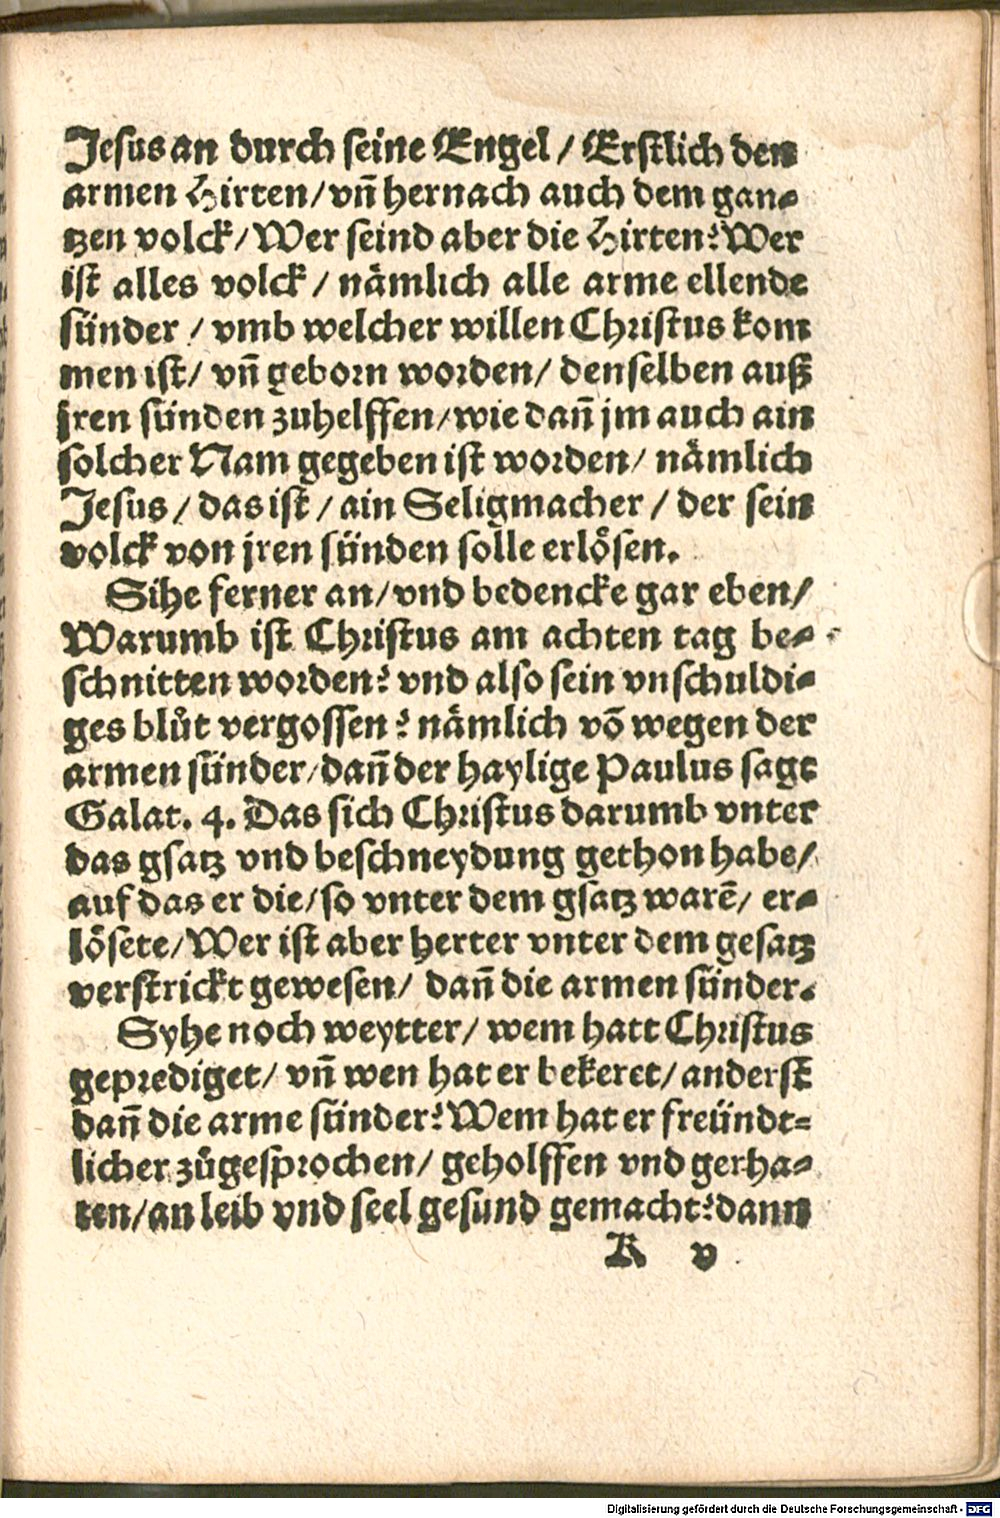 Jesus an durch seine Engel / Erstlich den
armen Hirten / vn̄ hernach auch dem gan-
tzen volck / Wer seind aber die Hirten? Wer
ist alles volck / nämlich alle arme ellende
sünder / vmb welcher willen Christus kom
men ist / vn̄ geborn worden / denselben auß
jren sünden zuhelffen / wie dan̄ jm auch ain
solcher Nam gegeben ist worden / nämlich
Jesus / das ist / ain Seligmacher / der sein
volck von jren sünden solle erlösen.
Sihe ferner an / vnd bedencke gar eben /
Warumb ist Christus am achten tag be-
schnitten worden? vnd also sein vnschuldi-
ges blůt vergossen? nämlich vō wegen der
armen sünder / dan̄ der haylige Paulus sagt
Galat. 4. Das sich Christus darumb vnter
das gsatz vnd beschneydung gethon habe /
auf das er die / so vnter dem gsatz warē / er-
lösete / Wer ist aber herter vnter dem gesatz
verstrickt gewesen / dan̄ die armen sünder.
Syhe noch weytter / wem hatt Christus
geprediget / vn̄ wen hat er bekeret / anderst
dan̄ die arme sünder? Wem hat er freündt-
licher zůgesprochen / geholffen vnd gerha-
ten / an leib vnd seel gesund gemacht? dann
K v
Digitalisierung gefördert durch die Deutsche Forschungsgemeinschaft - DFG